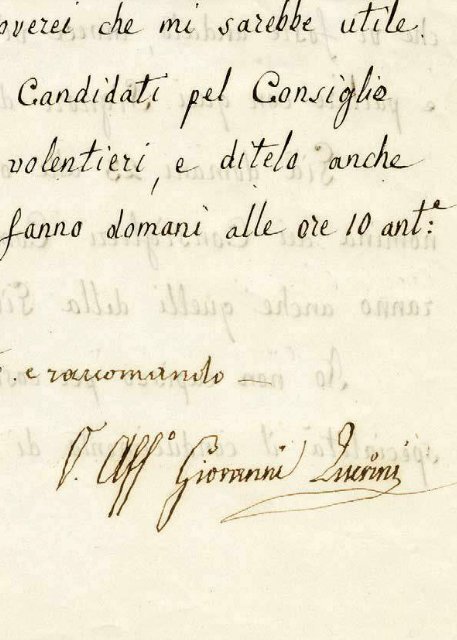 overei che mi sarebbe utile.
Candidati pel Consiglio
volentieri, e ditelo anche
fanno domani alle ore 10 ant:e
. e raccomando —
V. Affo Giovanni Querini